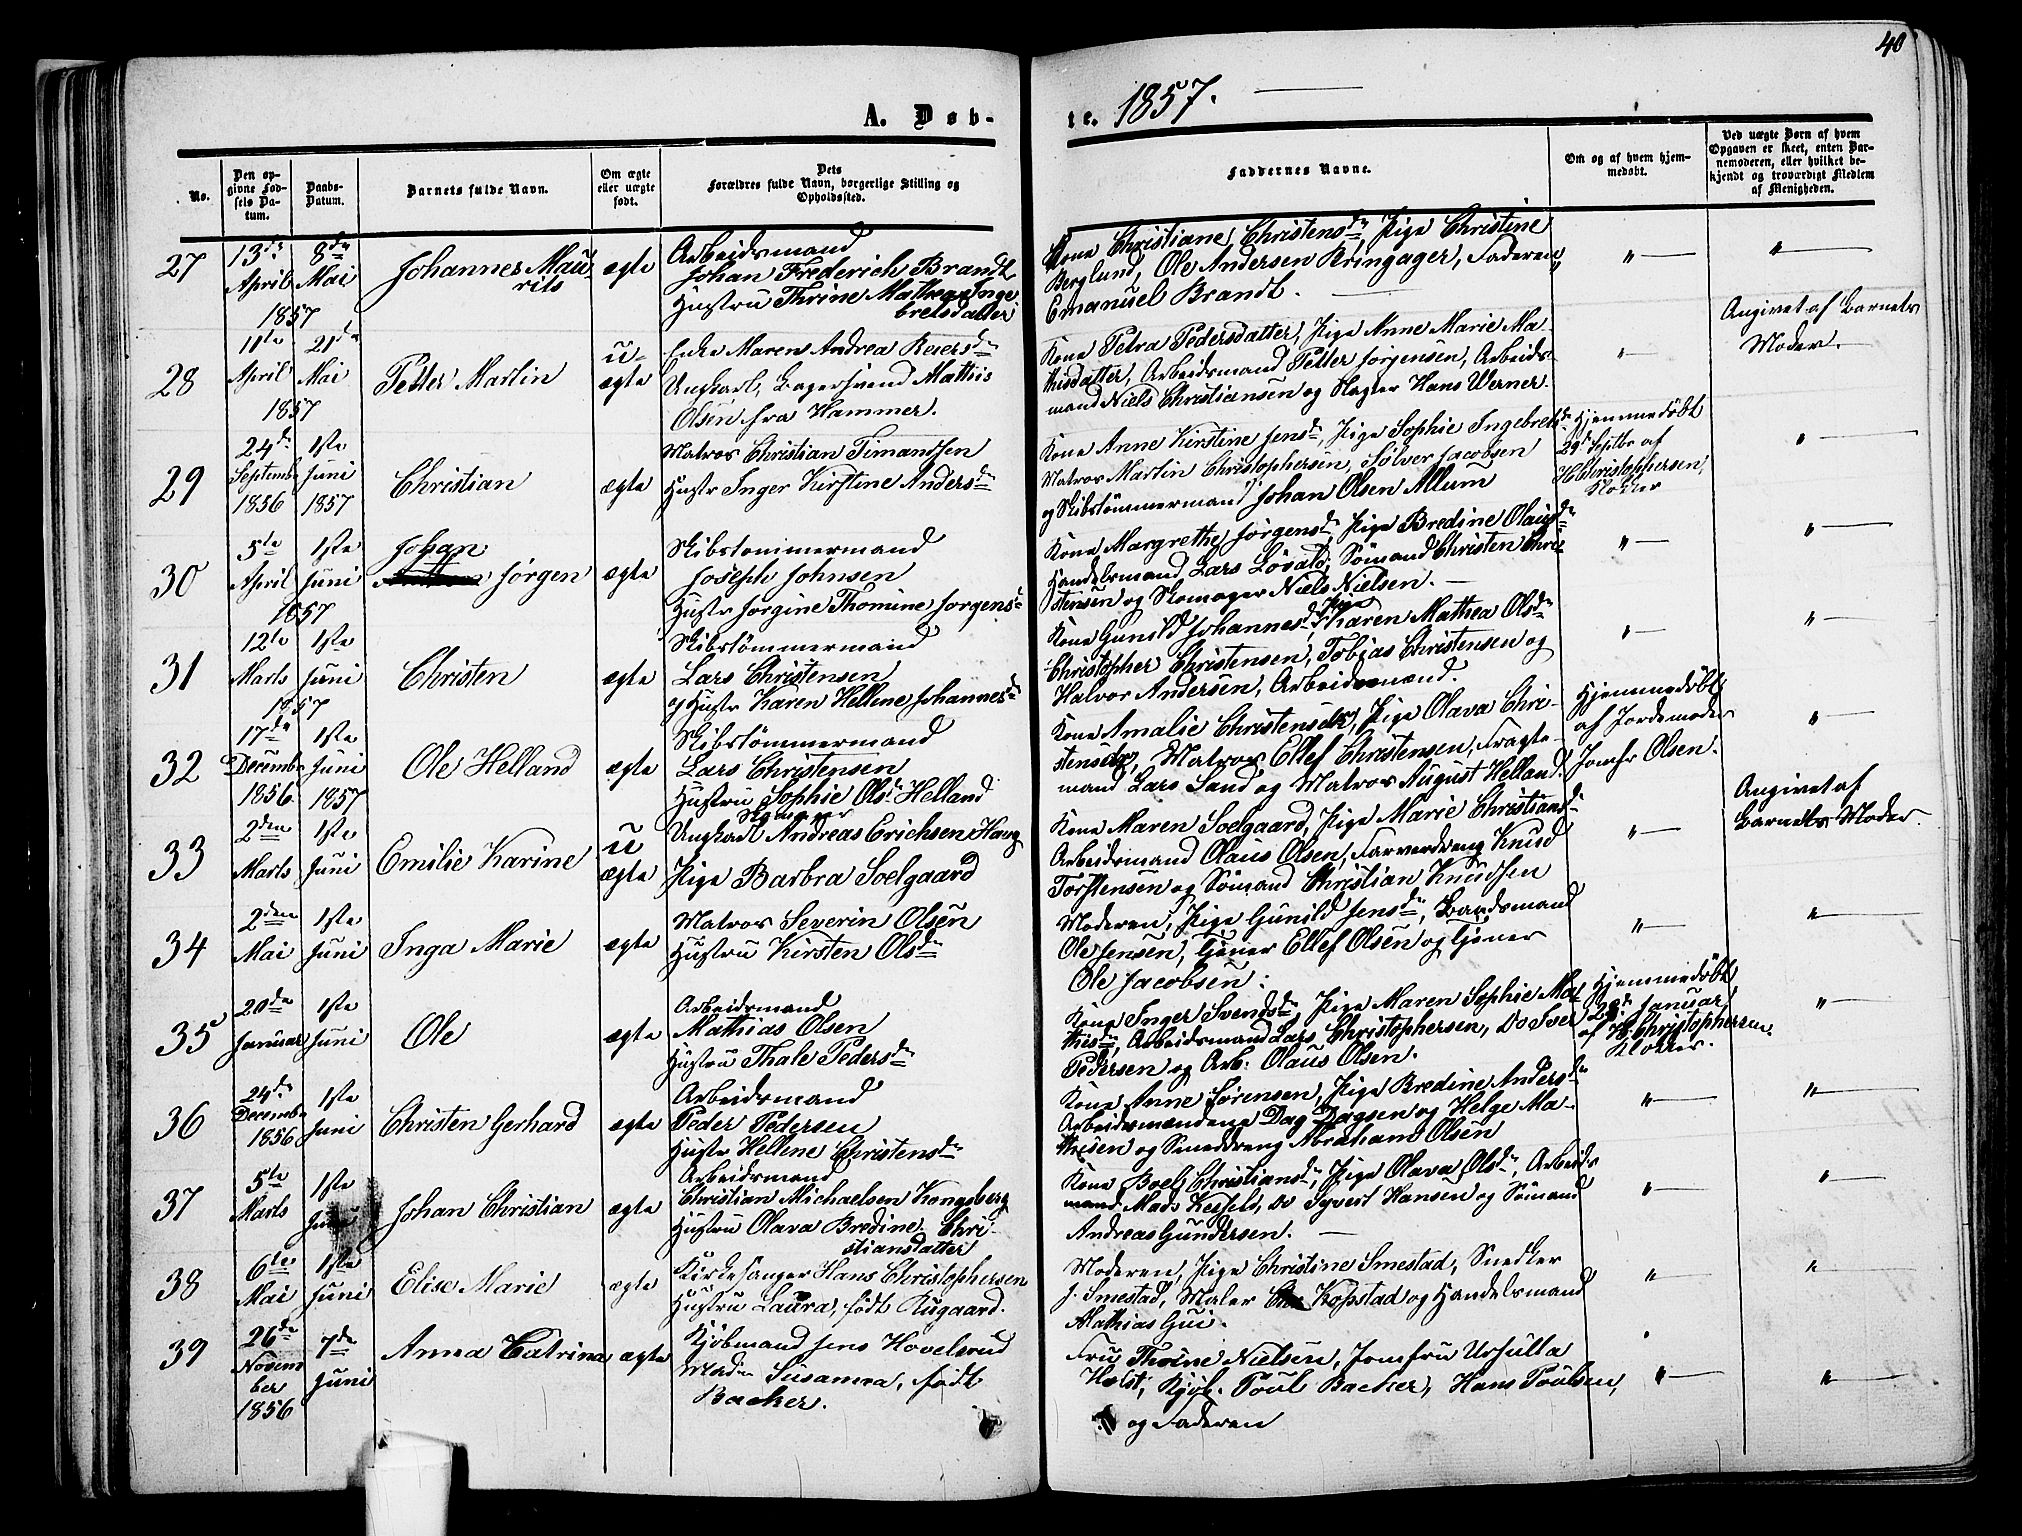 40
A. Døb-
te. 1857.
No.
Den op-
givne Fød-
sels Da-
tum.
Daabs-
Datum.
Barnets fulde Navn.
Om ægte
eller uægte
født.
Dets
Forældres fulde Navn, borgerlige Stilling og
Opholdssted.
Faddernes Navne.
Om og af hvem hjem-
medøbt.
Ved uægte Børn af hvem
Opgaven er skeet, enten Bar-
nemoderen, eller hvilket be-
kjendt og troværdigt Medlem
af Menigheden.
27
13de
April
1857
8de
Mai
Johannes Mau
rits
ægte
Arbeidsmand
Johan Frederich Brandt
Hustru Thrine Mathea Inge
bretsdatter
Kone Christiane Christensdr, Pige Christine
Berglund, Ole Andersen Bringager, Faderen,
Emanuel Brandt.
28
11te
April
1857
21de
Mai
Petter Martin
u-
ægte
Enke Maren Andrea Reiersdr
Ungkarl, Bagersvend Mathis
Olsen fra Hammer.
Kone Petra Pedersdatter, Pige Anne Marie Ma-
thisdatter, Arbeidsmand Petter Jørgensen, Arbeids-
mand Niels Christiansen og Slagter Hans Werner.
Angivet af Barnets
Moder.
29
24de
Septembr
1856
1ste
Juni
1857
Christian
ægte
Matros Christian Timandsen
Hustr Inger Kirstine Andersdr
Kone Anne Kirstine Jensdr, Pige Sophie Ingebretsdr
Matros Martin Christophersen, Sølver Jacobsen
og Skibstømmermand Johan Olsen Allum
Hjemmedøbt
29de Septbr af
H Christophersen,
Klokker
30
5te
April
1857
1ste
Juni
Johan
Jørgen
ægte
Skibstømmermand
Joseph Johnsen
Hustr Jorgine Thomine Jorgensdr
Kone Margrethe Jørgensdr Pige Bredine Olausdr
Handelsmand Lars Løvald, Sømand Christen Chri-
stensen og Skomager Niels Nielsen.
31
12te
Marts
1857
1ste
Juni
Christen
ægte
Skibstømmermand
Lars Christensen
og Hustr Karen Hellene Johannesdr
Kone Gunild Johannesdr, Pige Karen Mathea Olsdr
Christopher Christensen, Tobias Christensen og
Halvor Andersen, Arbeidsmænd.
32
17de
Decembr
1856
1ste
Juni
1857
Ole Helland
ægte
Skibstømmermand
Lars Christensen
Hustru Sophie Olsdr Helland
Kone Amalie Christensdr, Pige Olava Chri-
stensdr, Matros Ellef Christensen, Fragte-
mand Lars Sand og Matros August Helland.
Hjemmedøbt
af Jordemoder
Jomfr Olsen.
33
2den
Marts
1ste
Juni
Emilie Karine
u
ægte
Skomager
Ungkarl Andreas Erichsen Haug
Pige Barbra Soelgaard
Kone Maren Soelgaard, Pige Marie Christiansdr
Arbeidsmand Olaus Olsen, Farverdreng Knud
Torstensen og Sømand Christian Knudsen
Angivet af
Barnets Moder.
34
2den
Mai
1ste
Juni
Inga Marie
ægte
Matros Severin Olsen
Hustru Kirsten Olsdr
Moderen, Pige Gunild Jensdr, Baadsmand
Ole Jensen, Tjener Ellef Olsen og Tjener
Ole Jacobsen.
35
20de
Januar
1ste
Juni
Ole
ægte
Arbeidsmand
Mathias Olsen
Hustru Thale Pedersdr
Kone Inger Svendsdr, Pige Maren Sophie Ma-
thisdr, Arbeidsmand Lars Christophersen, Do Iver
Pedersen og Arb. Olaus Olsen.
Hjemmedøbt
Januar
af H Christophersen
Klokker.
36
24de
Decembr
1856
1ste
Juni
Christen Gerhard
ægte
Arbeidsmand
Peder Pedersen
Hustr Hellene Christensdr
Kone Anne Sørensen, Pige Bredine Andersdr
Arbeidsmændene Dag Dagsen og Helge Ma-
thisen og Smeddreng Abraham Olsen
37
5te
Marts
1ste
Juni
Johan Christian
ægte
Arbeidsmand
Christian Michaelsen Kongsberg
Hustru Olava Bredine Chri-
stiansdatter
Kone Boel Christiansdr, Pige Olava Olsdr, Arbeids
mand Mads Kessels, Do Syvert Hansen og Sømand
Andreas Gundersen.
38
6te
Mai
1ste
Juni
Elise Marie
ægte
Kirkesanger Hans Christophersen
Hustru Laura, født Rugaard.
Moderen, Pige Christine Smestad, Snedker
J. Smestad, Maler Kopstad og Handelsmand
Mathias Gui.
39
26de
Novem
ber
1856
7de
Juni
Anna Catrina
ægte
Kjøbmand Jens Hovelsrud
Madm Susanna, født
Backer.
Fru Thrine Nielsen, Jomfru Ursulla
Holst, Kjøb. Poul Backer, Hans Poulsen,
og Faderen